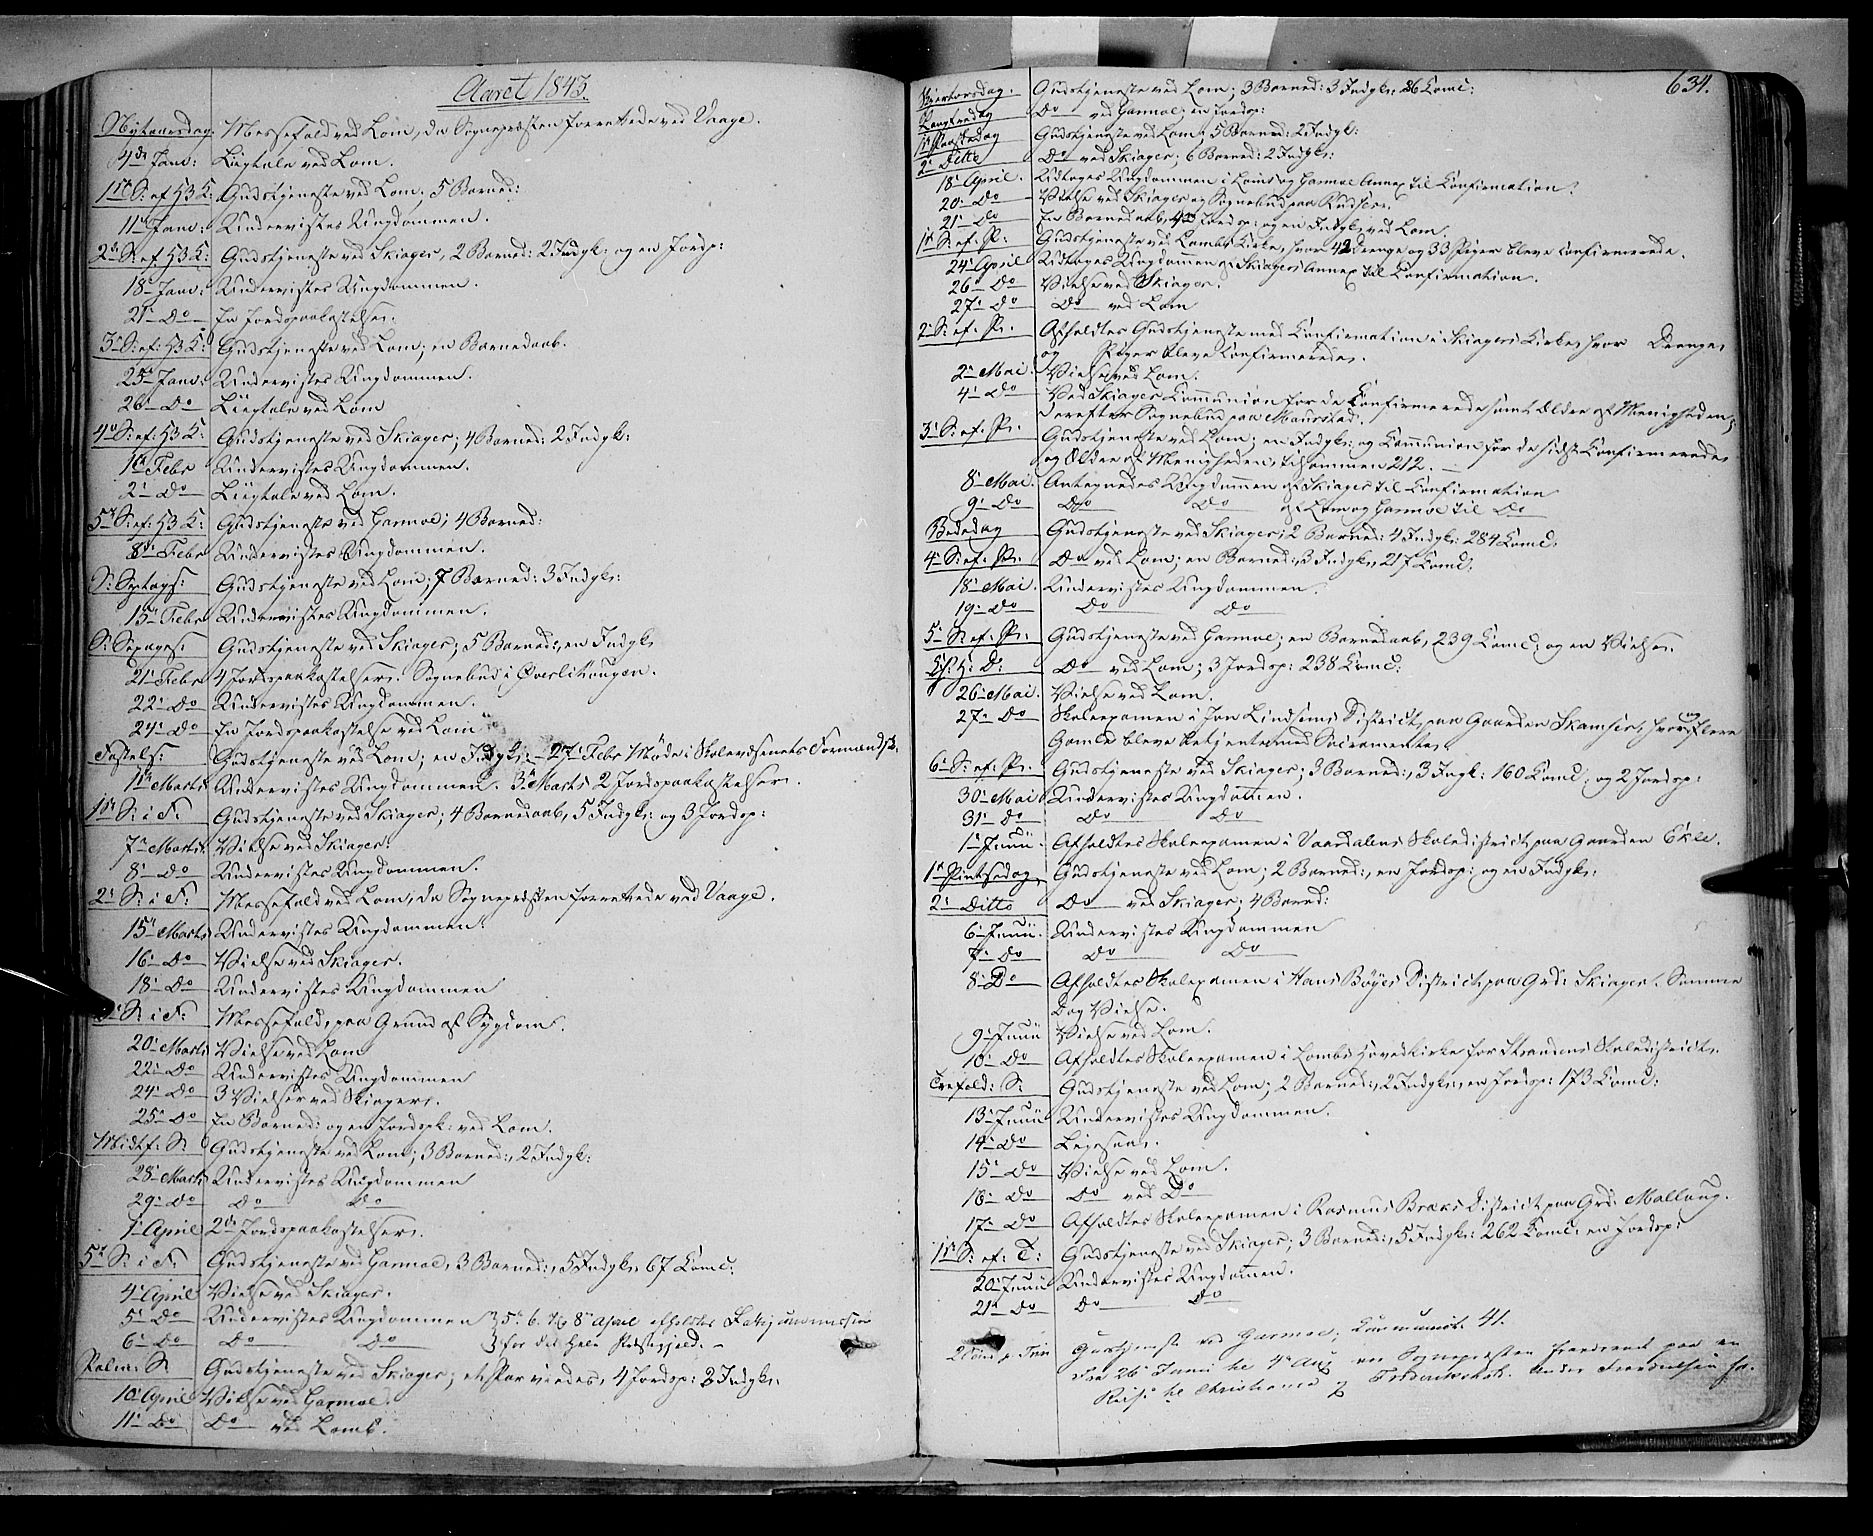 Aaret 1843.
Nytaarsdag. Messefald ved Lom, da Sognepræsten forrettede ved Vaage.
4de Janr: Liigtale ved Lom.
1ste S: ef H3K: Gudstjeneste ved Lom, 5 Barned:
11te Janr: Undervistes Ungdommen.
2den S: ef. H3K: Gudstjeneste ved Skiager, 2 Barned: 2 Indgk: og en Jordsp:
18de Janr: Undervistes Ungdommen.
21de Do En Jordspaakastelse.
3de S: ef: H3K: Gudstjeneste ved Lom; en Barnedaab.
25de Janr: Undervistes Ungdommen.
26de Do Liigtale ved Lom
4de S: ef: H3K: Gudstjeneste ved Skiager; 4 Barned: 2 Indgk:
1ste Febr Undervistes Ungdommen.
2den Do Liigtale ved Lom.
5te S: ef: H3K: Gudstjeneste ved Garmoe; 4 Barned:
8de Febr Undervistes Ungdommen.
S: Septags: Gudstjeneste ved Lom; 7 Barned: 3 Indgk:
15de Febr Undervistes Ungdommen.
S: Sexages: Gudstjeneste ved Skiager; 5 Barned:, en Indgk.
21de Febr 4 Jordspaakastelser. Sognebud i Øverlihaugen.
22de Do Undervistes Ungdommen.
24de Do En Jordspaakastelse ved Lom
Fastels: Gudstjeneste ved Lom; en Indgk: – 27de Febr Møde i Skolevæsenets Formandsk.
1ste Marts Undervistes Ungdommen. 3die Marts 2 Jordspaakastelser.
1ste S: i F: Gudstjeneste ved Skiager; 4 Barnedaab, 5 Indgk: og 3 Jordsp:
7de Marts Vielse ved Skiager.
8de Do Undervistes Ungdommen.
2den S: i F: Messefald ved Lom, da Sognepræsten forrettede ved Vaage.
15de Marts Undervistes Ungdommen.
16de Do Vielse ved Skiager.
18de Do Undervistes Ungdommen
S: i F: Messefald, paa Grund af Sygdom.
20de Marts Vielse ved Lom
22de Do Undervistes Ungdommen
24de Do 3 Vielser ved Skiager.
25de Do En Barned: og en Jordspk: ved Lom.
Midtf: S: Gudstjeneste ved Lom; 3 Barned:, 2 Indgk:
28de Marts Undervistes Ungdommen
29de Do Do Do
1ste April 2de Jordspaakastelser.
5te S: i F. Gudstjeneste ved Garmoe, 3 Barned:, 5 Indgk: 67 Comc:
4de April Vielse ved Skiager.
5te Do Undervistes Ungdommen } 5te 6. 7de 8de April afholdtes Fattigcommission
6te Do Do Do } for det hele Præstegjeld. –
Palm: S: Gudstjeneste ved Skiager; et Par viedes, 4 Jordsp: 2 Indgk:
10de April Vielse ved Garmoe.
11te Do Do ved Lomb.
634.
Skiertorsdag. Gudstjeneste ved Lom; 3 Barned: 3 Indgk: 86 Comc:
Langfredag Do ved Garmoe; en Jordsp:
1ste Paaskedag Gudstjeneste ved Lom. 5 Barned: 2 Indgk:
2den Ditto Do ved Skiager; 6 Barned: 2 Indgk:
18de April. Udtoges Ungdommen i Loms og Garmoe Annex til Confirmation.
20de Do Vielse ved Skiager og Sognebud paa
21de Do En Barnedaab, 4 Jordsp: og en Indgk: ved Lom.
1ste S: ef. P: Gudstjeneste ved Lombs Kirke, hvor 42 Drenge og 33 Piger bleve confirmerede.
24de April Udtoges Ungdommen af Skiagers Annex til Confirmation.
26de Do Vielse ved Skiager.
27de Do Do ved Lom
2den S: ef. P: Afholdtes Gudstjeneste med Confirmation i Skiagers Kirke, hvor Drenge
og Piger bleve Confirmerede.
2den Mai Vielse ved Lom.
4de Do Ved Skiager Communion for de Confirmerede samt Ældre af Menigheden;
derefter Sognebud paa Maurstad.
3die S: ef. P: Gudstjeneste ved Lom; en Indgk: og Communion for de sidst Confirmerede
og Ældre af Menigheden, tilsammen 212. –
8de Mai Antegnedes Ungdommen af Skiager til Confirmation
9de Do Do Do af Lom og Garmoe til Do
Bededag Gudstjeneste ved Skiager; 2 Barned: 4 Indgk: 284 Comc:
4de S: ef. P: Do ved Lom; en Barned:, 3 Indgk: 217 Comc:
18de Mai. Undervistes Ungdommen.
19de Do Do Do
5te S: ef. P: Gudstjeneste ved Garmoe; en Barnedaab, 239 Comc: og en Vielse.
Ch: H: D: Do ved Lom; 3 Jordsp: 238 Comc:
26de Mai. Vielse ved Lom.
27de Do Skoleexamen i Jon Lindsøes District, paa Gaarden Skamsar, hvor og flere
Gamle bleve betjente med Sacramentet.
6te S: ef. P: Gudstjeneste ved Skiager; 3 Barned:, 3 Ingk: 160 Comc: og 2 Jordsp:
30de Mai Undervistes Ungdommen.
31te Do Do Do
1ste Junii. Afholdtes Skoleexamen i Vaardalens Skoledistrict, paa Gaarden Ekle.
1ste Pintsedag Gudstjeneste ved Lom; 2 Barned:, en Jordsp: og en Indgk:
2den Ditto Do ved Skiager; 4 Barned:
6te Junii. Undervistes Ungdommen
7de Do Do Do
8de Do Afholdtes Skoleexamen i Hans Bøyes District, paa Grd: Skiager. Samme
Dag Vielse.
9de Junii Vielse ved Lom.
10de Do Afholdtes Skoleexamen i Lombs Hovedkirke for Strandens Skoledistrict.
Trefold: S: Gudstjeneste ved Lom; 2 Barned:, 2 Indgk:, en Jordsp: 173 Comc:
13de Junii Undervistes Ungdommen.
14de Do
15de Do Vielse ved Lom.
16de Do Do ved Do
17de Do Afholdtes Skoleexamen i Rasmus Bræks District paa Grd: Mallaug.
1ste S: ef: T: Gudstjeneste ved Skiager; 3 Barned:, 5 Indgk: 262 Comc: en Jordsp:
20de Junii Undervistes Ungdommen.
21de Do Do Do
Gudstjeneste ved Garmoe; Communic. 41.
Fra 26 Junii til 4de Aug. var Sognepræsten fraværende paa en
Reise til Christiania og Frederikshald.